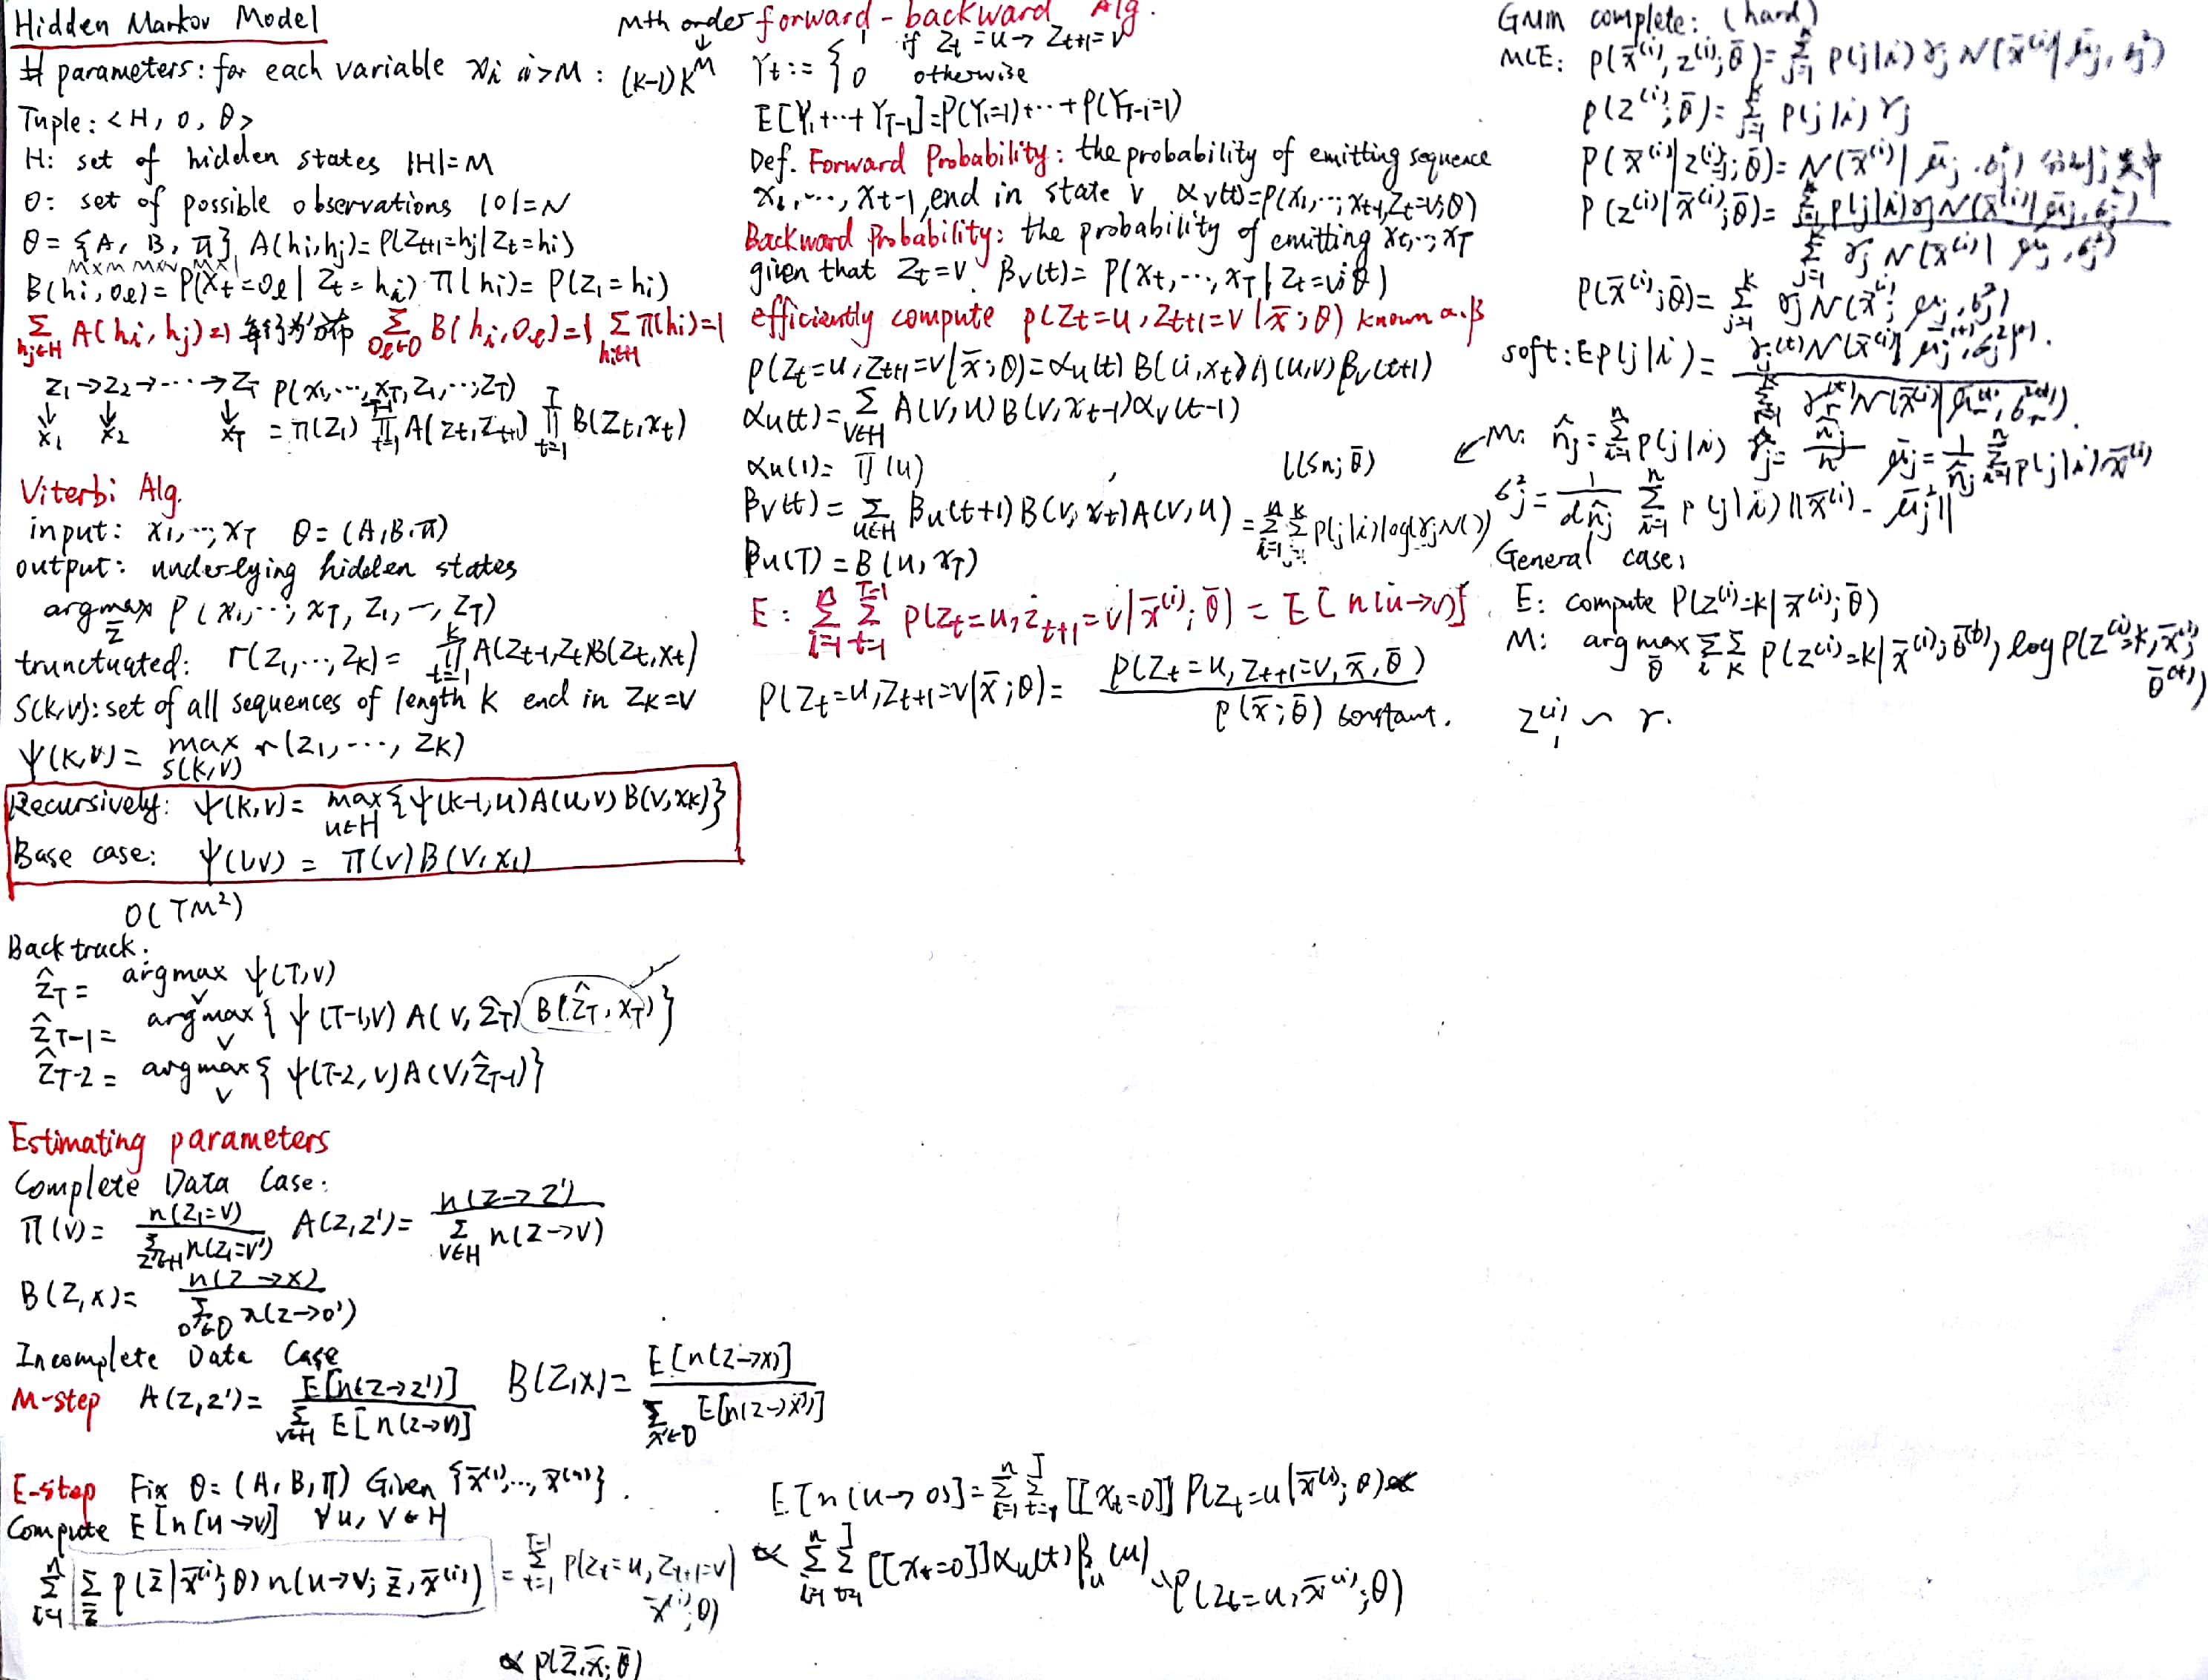 Hidden Markov Model
# parameters: for each variable xi i>M : (k-1)K^M
Mth order
Tuple: <H, O, θ>
H: set of hidden states |H|=M
O: set of possible observations |O|=N
θ = {A, B, π} A(hi,hj)=P(Zt+1=hj|Zt=hi)
M×M M×N M×1
B(hi,Ol)=P(Xt=Ol|Zt=hi) π(hi)=P(Z1=hi)
Σ_{hj∈H} A(hi,hj)=1 每行为分布 Σ_{Ol∈O} B(hi,Ol)=1 Σ_{hi∈H} π(hi)=1
Z1→Z2→⋯→ZT P(x1,⋯,xT,Z1,⋯,ZT)
↓ ↓ ↓
x1 x2 xT = π(Z1) ∏_{t=1}^{T-1} A(Zt,Zt+1) ∏_{t=1}^{T} B(Zt,xt)
Viterbi Alg.
input: x1,⋯,xT θ=(A,B,π)
output: underlying hidden states
argmax_{z̄} P(x1,⋯,xT,Z1,⋯,ZT)
trunctuated: r(Z1,⋯,Zk)= ∏_{t=1}^{k} A(Zt-1,Zt)B(Zt,xt)
S(k,v): set of all sequences of length k end in Zk=v
ψ(k,v)= max_{S(k,v)} r(Z1,⋯,Zk)
Recursively: ψ(k,v)= max_{u∈H}{ψ(k-1,u)A(u,v)B(v,xk)}
Base case: ψ(1,v) = π(v)B(v,x1)
O(TM²)
Backtrack:
ẑT= argmax_v ψ(T,v)
ẑT-1= argmax_v{ψ(T-1,v)A(v,ẑT)B(ẑT,xT)}
ẑT-2= argmax_v{ψ(T-2,v)A(v,ẑT-1)}
Estimating parameters
Complete Data Case:
π(v)= n(Z1=v) / Σ n(Z1=v') A(Z,Z')= n(Z→Z') / Σ_{v∈H} n(Z→v)
B(Z,x)= n(Z→x) / Σ_{O'∈O} n(Z→O')
Incomplete Data Case
M-step A(Z,Z')= E[n(Z→Z')] / Σ_{v∈H} E[n(Z→v)] B(Z,x)= E[n(Z→x)] / Σ_{x'∈O} E[n(Z→x')]
E-step Fix θ=(A,B,π) Given {x̄⁽¹⁾,⋯,x̄⁽ⁿ⁾}.
Compute E[n(u→v)] ∀u,v∈H
Σ_{i=1}^{n} Σ_{z̄} P(z̄|x̄⁽ⁱ⁾;θ)n(u→v;z̄,x̄⁽ⁱ⁾) = Σ_{t=1}^{T-1} P(Zt=u,Zt+1=v| x̄⁽ⁱ⁾;θ)
∝ P(z̄,x̄;θ̄)
forward-backward Alg.
Yt:= { 1 if Zt=u→Zt+1=v
0 otherwise
E[Y1+⋯+YT-1]=P(Y1=1)+⋯+P(YT-1=1)
Def. Forward Probability: the probability of emitting sequence
x1,⋯,xt-1, end in state v αv(t)=P(x1,⋯,xt-1,Zt=v;θ)
Backward Probability: the probability of emitting xt,⋯,xT
given that Zt=v. βv(t)=P(xt,⋯,xT|Zt=v;θ)
efficiently compute P(Zt=u,Zt+1=v|x̄;θ) known α,β
P(Zt=u,Zt+1=v|x̄;θ)=αu(t)B(u,xt)A(u,v)βv(t+1)
αu(t)= Σ_{v∈H} A(v,u)B(v,xt-1)αv(t-1)
αu(1)= π(u)
βv(t)= Σ_{u∈H} βu(t+1)B(v,xt)A(v,u)
βu(T)=B(u,xT)
E: Σ_{i=1}^{n} Σ_{t=1}^{T-1} P(Zt=u,Zt+1=v|x̄⁽ⁱ⁾;θ̄)=E[n(u→v)]
P(Zt=u,Zt+1=v|x̄;θ)= P(Zt=u,Zt+1=v,x̄,θ̄) / P(x̄;θ̄) constant.
E[n(u→O)]= Σ_{i=1}^{n} Σ_{t=1}^{T} [[xt=O]] P(Zt=u|x̄⁽ⁱ⁾;θ) ∝
∝ Σ_{i=1}^{n} Σ_{t=1}^{T} [[xt=O]]αu(t)βu(u) P(Zt=u,x̄⁽ⁱ⁾;θ)
GMM complete: (hard)
MLE: P(x̄⁽ⁱ⁾,z⁽ⁱ⁾;θ̄)= Σ_{j=1}^{k} P(j|i)γj N(x̄⁽ⁱ⁾|μ̄j,σj²)
P(z⁽ⁱ⁾;θ̄)= Σ_{j=1}^{k} P(j|i)γj
P(x̄⁽ⁱ⁾|z⁽ⁱ⁾;θ̄)=N(x̄⁽ⁱ⁾|μ̄j,σj²)
P(z⁽ⁱ⁾|x̄⁽ⁱ⁾;θ̄)= Σ_{j=1}^{k} P(j|i)γjN(x̄⁽ⁱ⁾|μ̄j,σj²) / Σ_{j=1}^{k} γjN(x̄⁽ⁱ⁾|μ̄j,σj²)
P(x̄⁽ⁱ⁾;θ̄)= Σ_{j=1}^{k} γjN(x̄⁽ⁱ⁾;μ̄j,σj²)
soft: E P(j|i)= γj⁽ᵗ⁾N(x̄⁽ⁱ⁾|μ̄j⁽ᵗ⁾,σj²⁽ᵗ⁾) / Σ γr⁽ᵗ⁾N(x̄⁽ⁱ⁾|μ̄r⁽ᵗ⁾,σr²⁽ᵗ⁾).
M: n̂j= Σ_{i=1}^{n} P(j|i) γ̂j= n̂j / n μ̄j= 1/n̂j Σ_{i=1}^{n} P(j|i)x̄⁽ⁱ⁾
σj²= 1/(d n̂j) Σ_{i=1}^{n} P(j|i)||x̄⁽ⁱ⁾-μ̄j||²
l(Sn;θ̄)
= Σ_{i=1}^{n} Σ_{j=1}^{k} P(j|i)log(γjN())
General case:
E: compute P(z⁽ⁱ⁾=k|x̄⁽ⁱ⁾;θ̄)
M: argmax_{θ̄} Σ_i Σ_k P(z⁽ⁱ⁾=k|x̄⁽ⁱ⁾;θ̄⁽ᵗ⁾) log P(z⁽ⁱ⁾=k,x̄⁽ⁱ⁾; θ̄⁽ᵗ⁾)
z₁⁽ⁱ⁾ ~ γ.